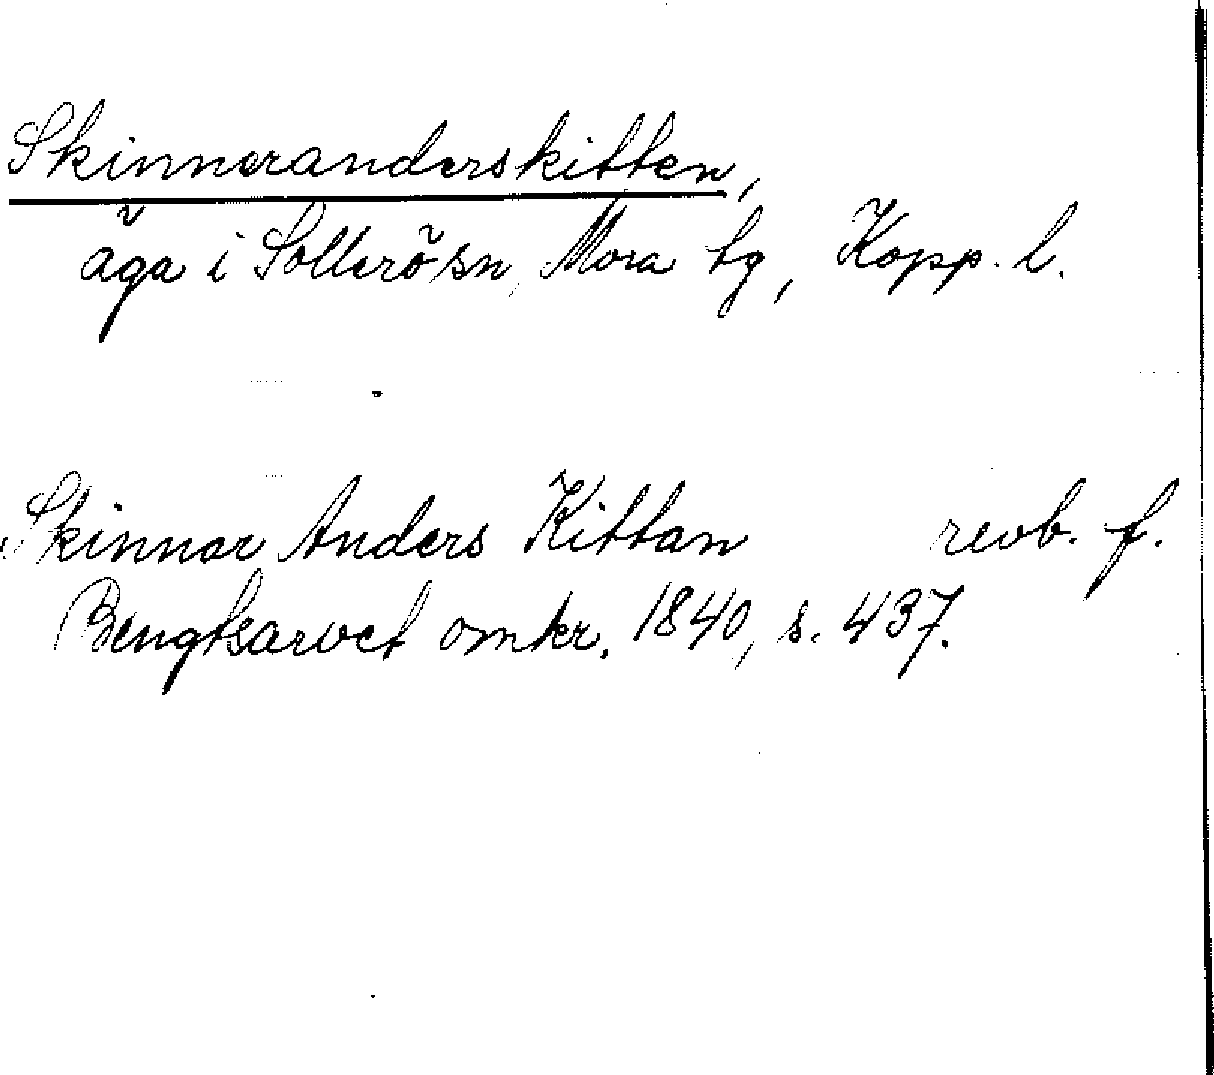 Skinneranderskitten,
äga i Sollerö sn, Mora tg, Kopp. l.
Skinnar Anders Kittan revb. f.
Bengtsarvet omkr. 1840, s. 437.